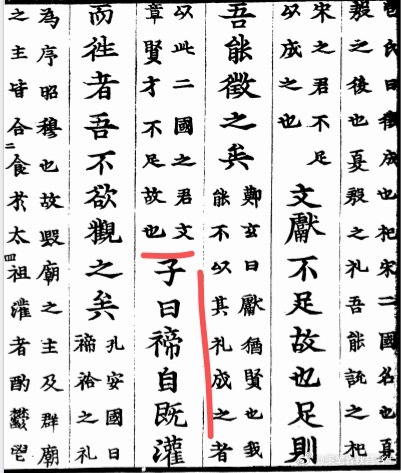 包氏曰徵成也杞宋二國名也夏
殷之後也夏殷之礼吾能說之杞
宋之君不足
以成之也
文獻不足故也足則
吾能徵之矣
鄭玄曰獻猶賢也我
能不以其礼成之者
以此二國之君文
章賢才不足故也
子曰禘自既灌
而徃者吾不欲觀之矣
孔安國曰
禘祫之礼
為序昭穆也故毀廟之主及群廟
之主皆合食於太祖灌者酌鬱鬯